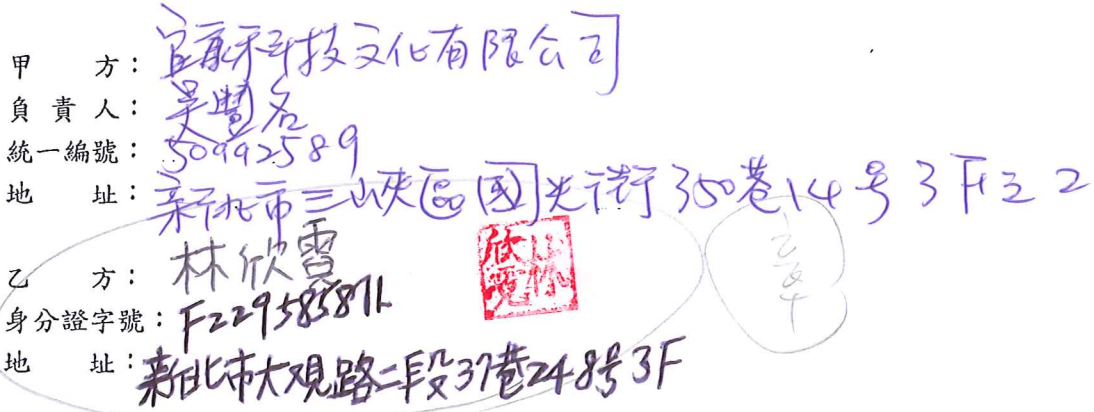 甲 方：宜蓁科技文化有限公司
負 責 人：吳豐名
統一編號：50992589
地 址：新北市三峽區國光街350巷14号3F之2
乙 方：林欣霓
身分證字號：F229585871
地 址：新北市大观路二段37巷248号3F